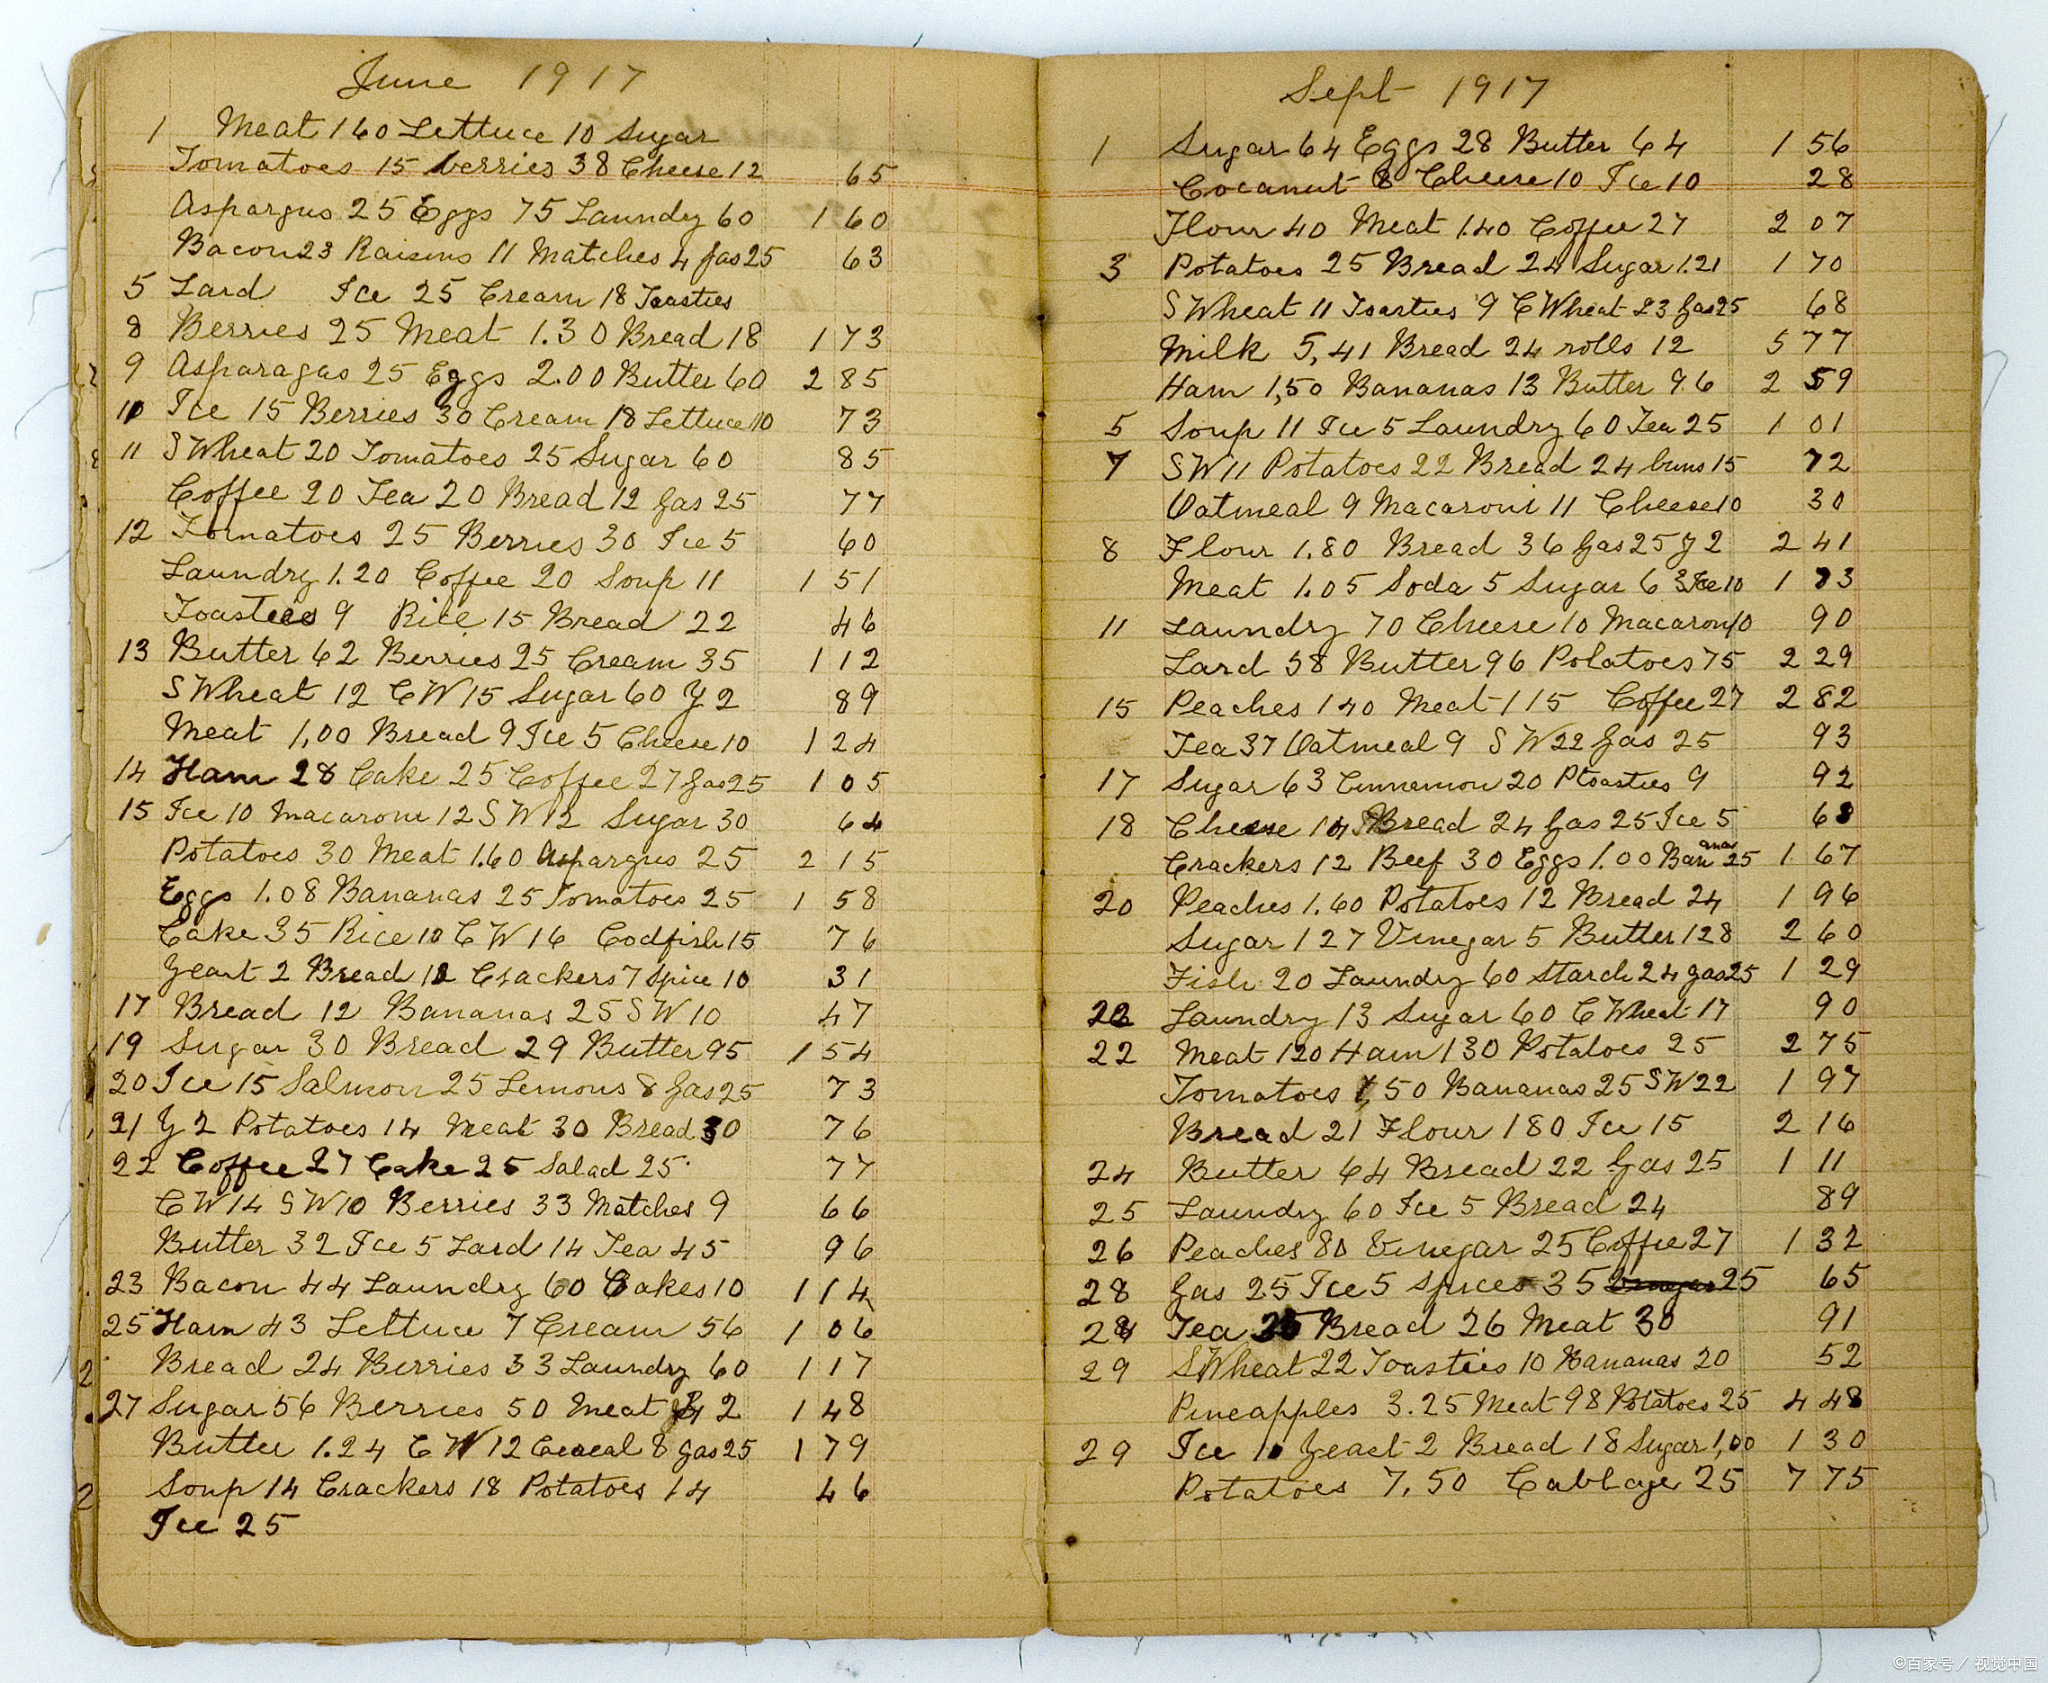 June 1917
1 Meat 160 Lettuce 10 Sugar
Tomatoes 15 berries 38 Cheese 12 65
Aspargus 25 Eggs 75 Laundry 60 1 60
Bacon 23 Raisens 11 Matches 4 gas 25 63
5 Lard Ice 25 Cream 18 Toasties
8 Berries 25 Meat 1.30 Bread 18 1 73
9 Asparagas 25 Eggs 2.00 Butter 60 2 85
10 Ice 15 Berries 30 Cream 18 Lettuce 10 73
11 S Wheat 20 Tomatoes 25 Sugar 60 85
Coffee 20 Tea 20 Bread 12 gas 25 77
12 Tomatoes 25 Berries 30 Ice 5 60
Laundry 1.20 Coffee 20 Soup 11 1 51
Toasties 9 Rice 15 Bread 22 46
13 Butter 62 Berries 25 Cream 35 1 12
S Wheat 12 C W 15 Sugar 60 Y 2 89
Meat 1,00 Bread 9 Ice 5 Cheese 10 1 24
14 Ham 28 Cake 25 Coffee 27 gas 25 1 05
15 Ice 10 Macaroni 12 S W 12 Sugar 30 64
Potatoes 30 Meat 1.60 Aspargus 25 2 15
Eggs 1.08 Bananas 25 Tomatoes 25 1 58
Cake 35 Rice 10 C W 16 Codfish 15 76
Yeast 2 Bread 12 Crackers 7 Spice 10 31
17 Bread 12 Bananas 25 S W 10 47
19 Sugar 30 Bread 29 Butter 95 1 54
20 Ice 15 Salmon 25 Lemons 8 gas 25 73
21 Y 2 Potatoes 14 Meat 30 Bread 30 76
22 Coffee 27 Cake 25 Salad 25 77
C W 14 S W 10 Berries 33 Matches 9 66
Butter 32 Ice 5 Lard 14 Tea 45 96
23 Bacon 44 Laundry 60 Cakes 10 1 14
25 Ham 43 Lettuce 7 Cream 56 1 06
Bread 24 Berries 33 Laundry 60 1 17
27 Sugar 56 Berries 50 Meat 42 1 48
Butter 1.24 C W 12 Cereal 8 gas 25 1 79
Soup 14 Crackers 18 Potatoes 14 46
Ice 25
Sept 1917
1 Sugar 64 Eggs 28 Butter 64 1 56
Cocanut 8 Cheese 10 Ice 10 28
Flour 40 Meat 1.40 Coffee 27 2 07
3 Potatoes 25 Bread 24 Sugar 1.21 1 70
S Wheat 11 Toasties 9 C Wheat 23 gas 25 68
Milk 5,41 Bread 24 rolls 12 5 77
Ham 1,50 Bananas 13 Butter 96 2 59
5 Soup 11 Ice 5 Laundry 60 Tea 25 1 01
7 S W 11 Potatoes 22 Bread 24 buns 15 72
Oatmeal 9 Macaroni 11 Cheese 10 30
8 Flour 1.80 Bread 36 gas 25 Y 2 2 41
Meat 1.05 Soda 5 Sugar 63 Ice 10 1 83
11 Laundry 70 Cheese 10 Macaroni 10 90
Lard 58 Butter 96 Potatoes 75 2 29
15 Peaches 140 Meat 115 Coffee 27 2 82
Tea 37 Oatmeal 9 S W 22 gas 25 93
17 Sugar 63 Cinnamon 20 P toasties 9 92
18 Cheese 14 Bread 24 gas 25 Ice 5 68
Crackers 12 Beef 30 Eggs 1.00 Bananas 25 1 67
20 Peaches 1.60 Potatoes 12 Bread 24 1 96
Sugar 127 Vinegar 5 Butter 128 2 60
Fish 20 Laundry 60 Starch 24 gas 25 1 29
22 Laundry 13 Sugar 60 C Wheat 17 90
22 Meat 120 Ham 130 Potatoes 25 2 75
Tomatoes 1,50 Bananas 25 S W 22 1 97
Bread 21 Flour 180 Ice 15 2 16
24 Butter 64 Bread 22 gas 25 1 11
25 Laundry 60 Ice 5 Bread 24 89
26 Peaches 80 Vinegar 25 Coffee 27 1 32
28 gas 25 Ice 5 Spices 35 25 65
28 Tea 25 Bread 26 Meat 30 91
29 S Wheat 22 Toasties 10 Bananas 20 52
Pineapples 3.25 Meat 98 Potatoes 25 4 48
29 Ice 10 Yeast 2 Bread 18 Sugar 1,00 1 30
Potatoes 7,50 Cabbage 25 7 75
©百家号／视觉中国